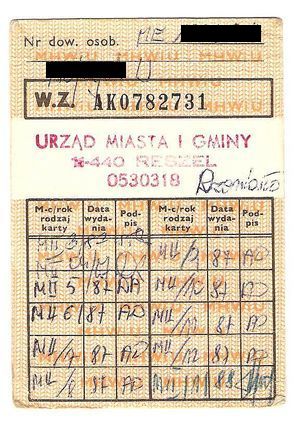 Nr dow. osob. ME
W.Z. AK0782731
URZĄD MIASTA I GMINY
11-440 RESZEL
0530318
M-c/rok rodzaj karty Data wydania Podpis M-c/rok rodzaj karty Data wydania Podpis
MII 3/83
MII /9 87 AD
MII 5/87 AD MII/10 87 AD
MII 6/87 AD MII/11 87 AD
MII/7 87 AD MII/12 87 AD
MII/8 87 AD MII/1 88